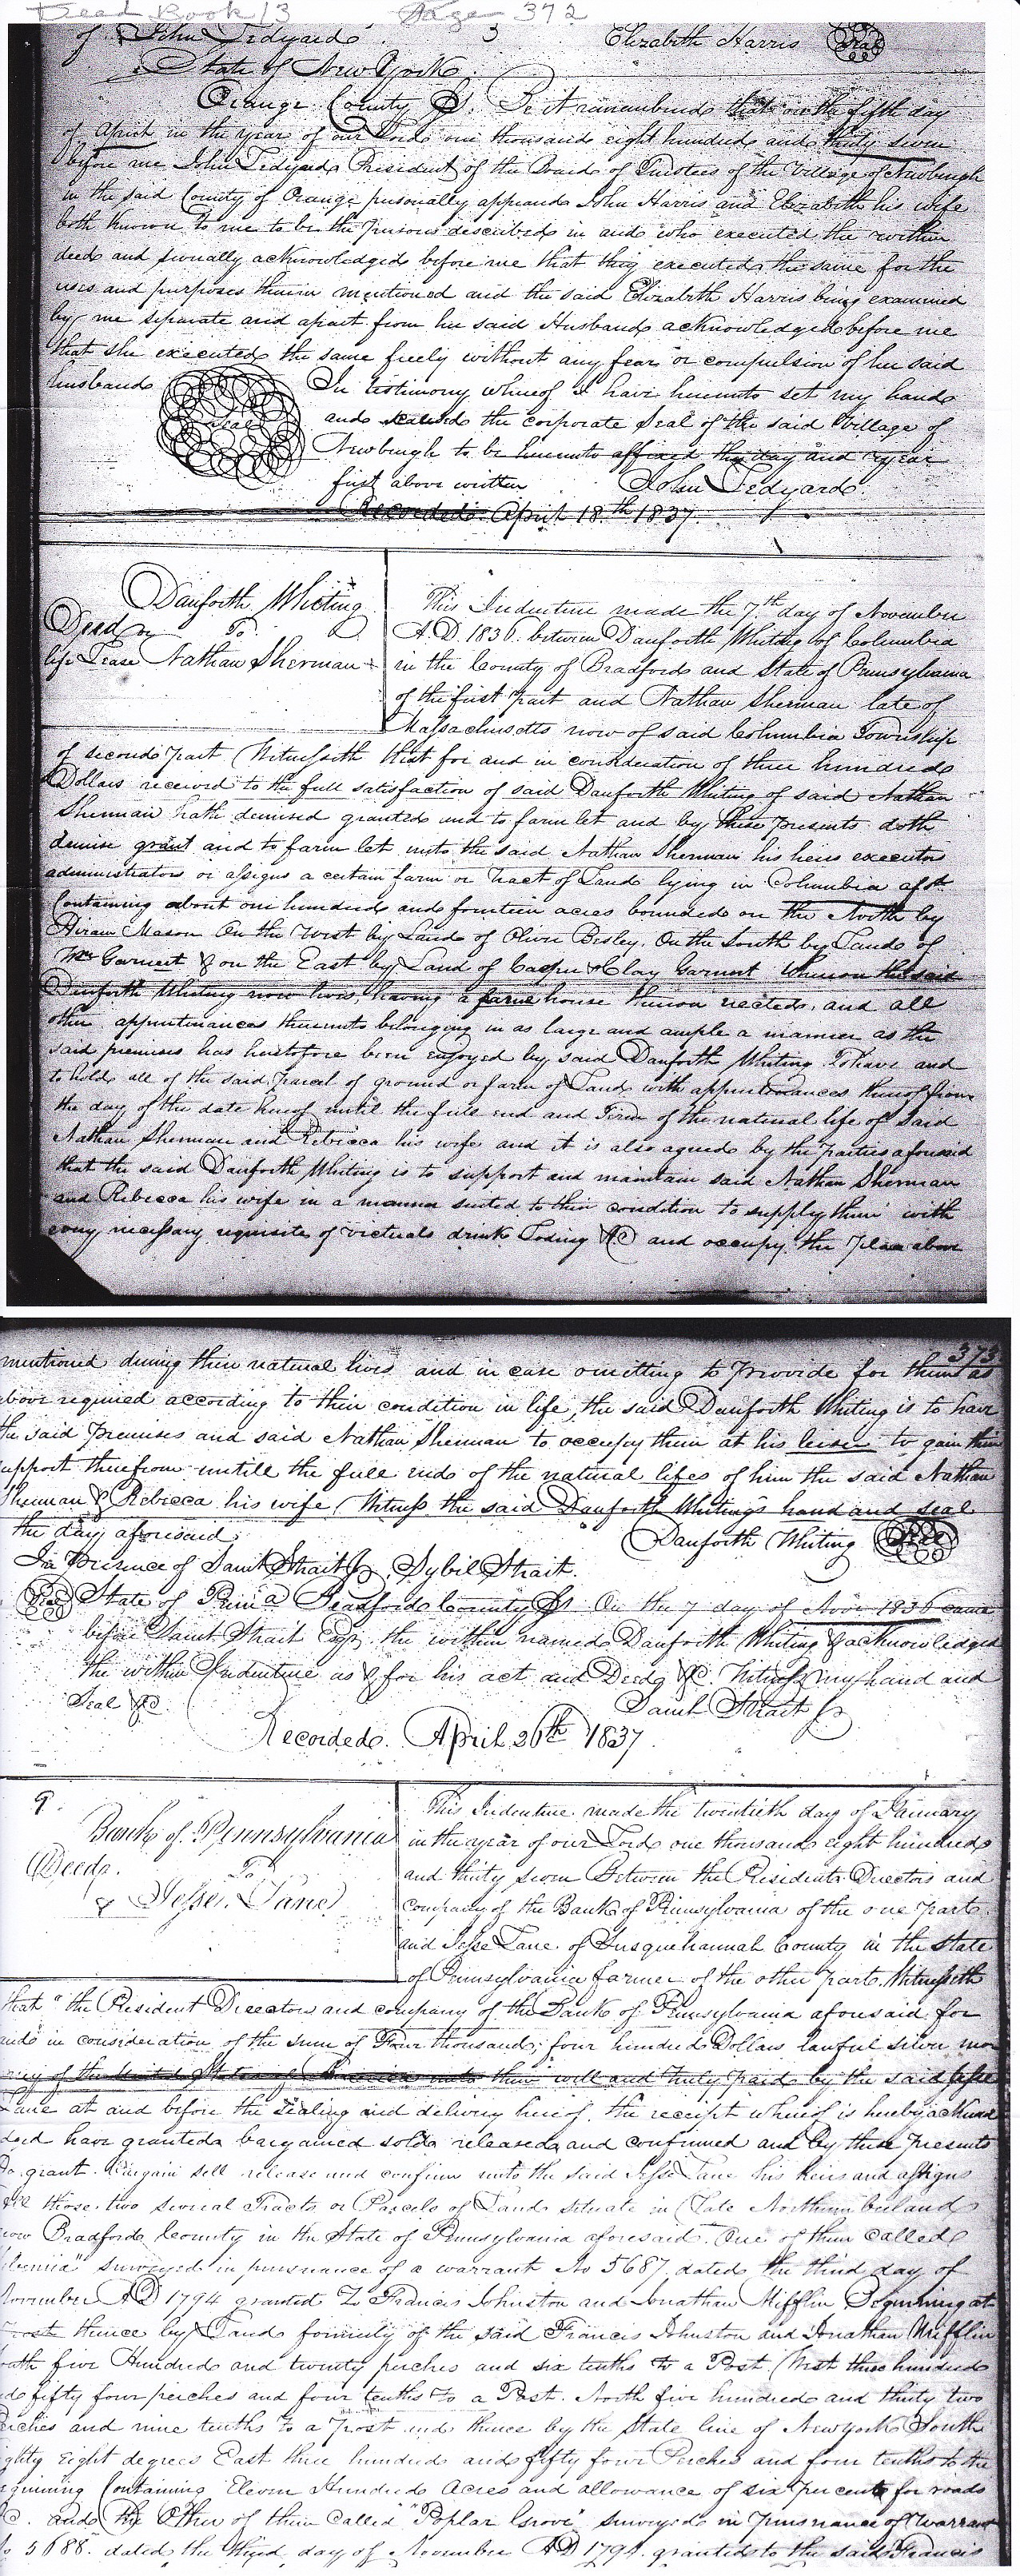 Deed Book 13 Page 372
of John Ledyard 3 Elizabeth Harris Seal
State of New York
Orange County Ss. Be it remembered that on the fifth day
of April in the year of our Lord one thousand eight hundred and thirty seven
before me John Ledyard President of the Board of Trustees of the Village of Newburgh
in the said County of Orange personally appeared John Harris and Elizabeth his wife
both known to me to be the persons described in and who executed the within
deed and severally acknowledged before me that they executed the same for the
uses and purposes therein mentioned and the said Elizabeth Harris being examined
by me separate and apart from her said Husband acknowledged before me
that she executed the same freely without any fear or compulsion of her said
husband In testimony whereof I have hereunto set my hand
Seal and caused the corporate Seal of the said Village of
Newburgh to be hereunto affixed the day and year
first above written John Ledyard
Recorded April 18th 1837.
Danforth Whiting
Deed or To
life Lease Nathan Sherman
This Indenture made the 7th day of November
A.D. 1836. between Danforth Whiting of Columbia
in the County of Bradford and State of Pennsylvania
of the first part and Nathan Sherman late of
Massachusetts now of said Columbia Township
of second part Witnesseth that for and in consideration of three hundred
Dollars received to the full satisfaction of said Danforth Whiting of said Nathan
Sherman hath demised granted and to farm let and by these presents doth
demise grant and to farm let unto the said Nathan Sherman his heirs executors
administrators or assigns a certain farm or Tract of Land lying in Columbia afsd.
Containing about one hundred and fourteen acres bounded on the North by
Hiram Mason On the West by Land of Oliver Besley. On the South by Lands of
Mr Garnert & on the East by Land of Casper & Clay Garnert whereon the said
Danforth Whiting now lives, having a farm house thereon erected, and all
other appurtenances thereunto belonging in as large and ample a manner as the
said premises has heretofore been enjoyed by said Danforth Whiting. To have and
to hold all of the said parcel of ground or farm of Land with appurtenances thereof from
the day of the date hereof until the full end and Term of the natural life of said
Nathan Sherman and Rebecca his wife and it is also agreed by the parties aforesaid
that the said Danforth Whiting is to support and maintain said Nathan Sherman
and Rebecca his wife in a manner suited to their condition to supply them with
every necessary requisite of victuals drink Loding &C and occupy the place above
373
mentioned during their natural lives and in case omitting to provide for them as
above required according to their condition in life, the said Danforth Whiting is to have
the said premises and said Nathan Sherman to occupy them at his leiser to gain their
support therefrom untill the full ends of the natural lifes of him the said Nathan
Sherman & Rebecca his wife Witness the said Danforth Whiting's hand and seal
the day aforesaid. Danforth Whiting Seal
In Presence of Saml Strait Jr, Sybil Strait.
Seal State of Penn'a Bradford County Ss On the 7 day of Novr 1836 came
before Saml Strait Esqr, the within named Danforth Whiting & acknowledged
the within Indenture as & for his act and Deed &C. Witness my hand and
Seal &C. Saml Strait Jr
Recorded April 26th 1837.
9.
Bank of Pennsylvania
Deed. To
& Jesse Lane
This Indenture made the twentieth day of January
in the year of our Lord one thousand eight hundred
and thirty seven Between the President Directors and
company of the Bank of Pennsylvania of the one part
and Jesse Lane of Susquehannah County in the State
of Pennsylvania farmer of the other part Witnesseth
that "the President Directors and company of the Bank of Pennsylvania aforesaid for
and in consideration of the sum of Four thousand, four hundred Dollars lawful silver mo
ney of the United States of America unto them well and truly paid by the said Jesse
Lane at and before the Sealing and delivery hereof, the receipt whereof is hereby acknow
ledged have granted bargained sold released and confirmed and by these presents
do grant. Bargain sell release and confirm unto the said Jesse Lane his heirs and assigns
All those two several Tracts or Parcels of Land situate in (late Northumberland)
now Bradford County in the State of Pennsylvania aforesaid. One of them called
surveyed in pursuance of a warrant No 5687, dated the third day of
November AD 1794 granted To Francis Johnston and Jonathan Mifflin Beginning at
Post thence by Land formerly of the said Francis Johnston and Jonathan Mifflin
South five Hundred and twenty perches and six tenths to a Post, West three hundred
and fifty four perches and four tenths to a Post. North five hundred and thirty two
Perches and nine tenths to a post and thence by the State line of New York South
eighty eight degrees East three hundred and fifty four Perches and four tenths to the
Beginning Containing Eleven Hundred Acres and allowance of six percent for roads
&C. and the Other of them Called "Poplar Grove" surveyed in pursuance of Warrant
No 5688. dated the third day of November AD 1794. granted to the said Francis